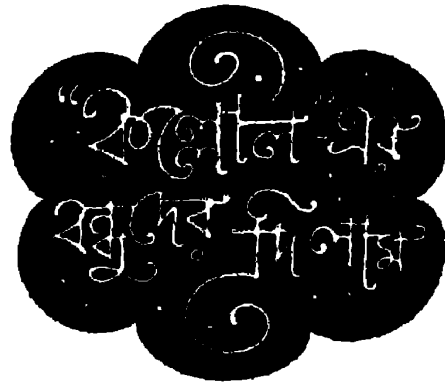 “কল্লোল” এর
বন্ধুদের দিলাম